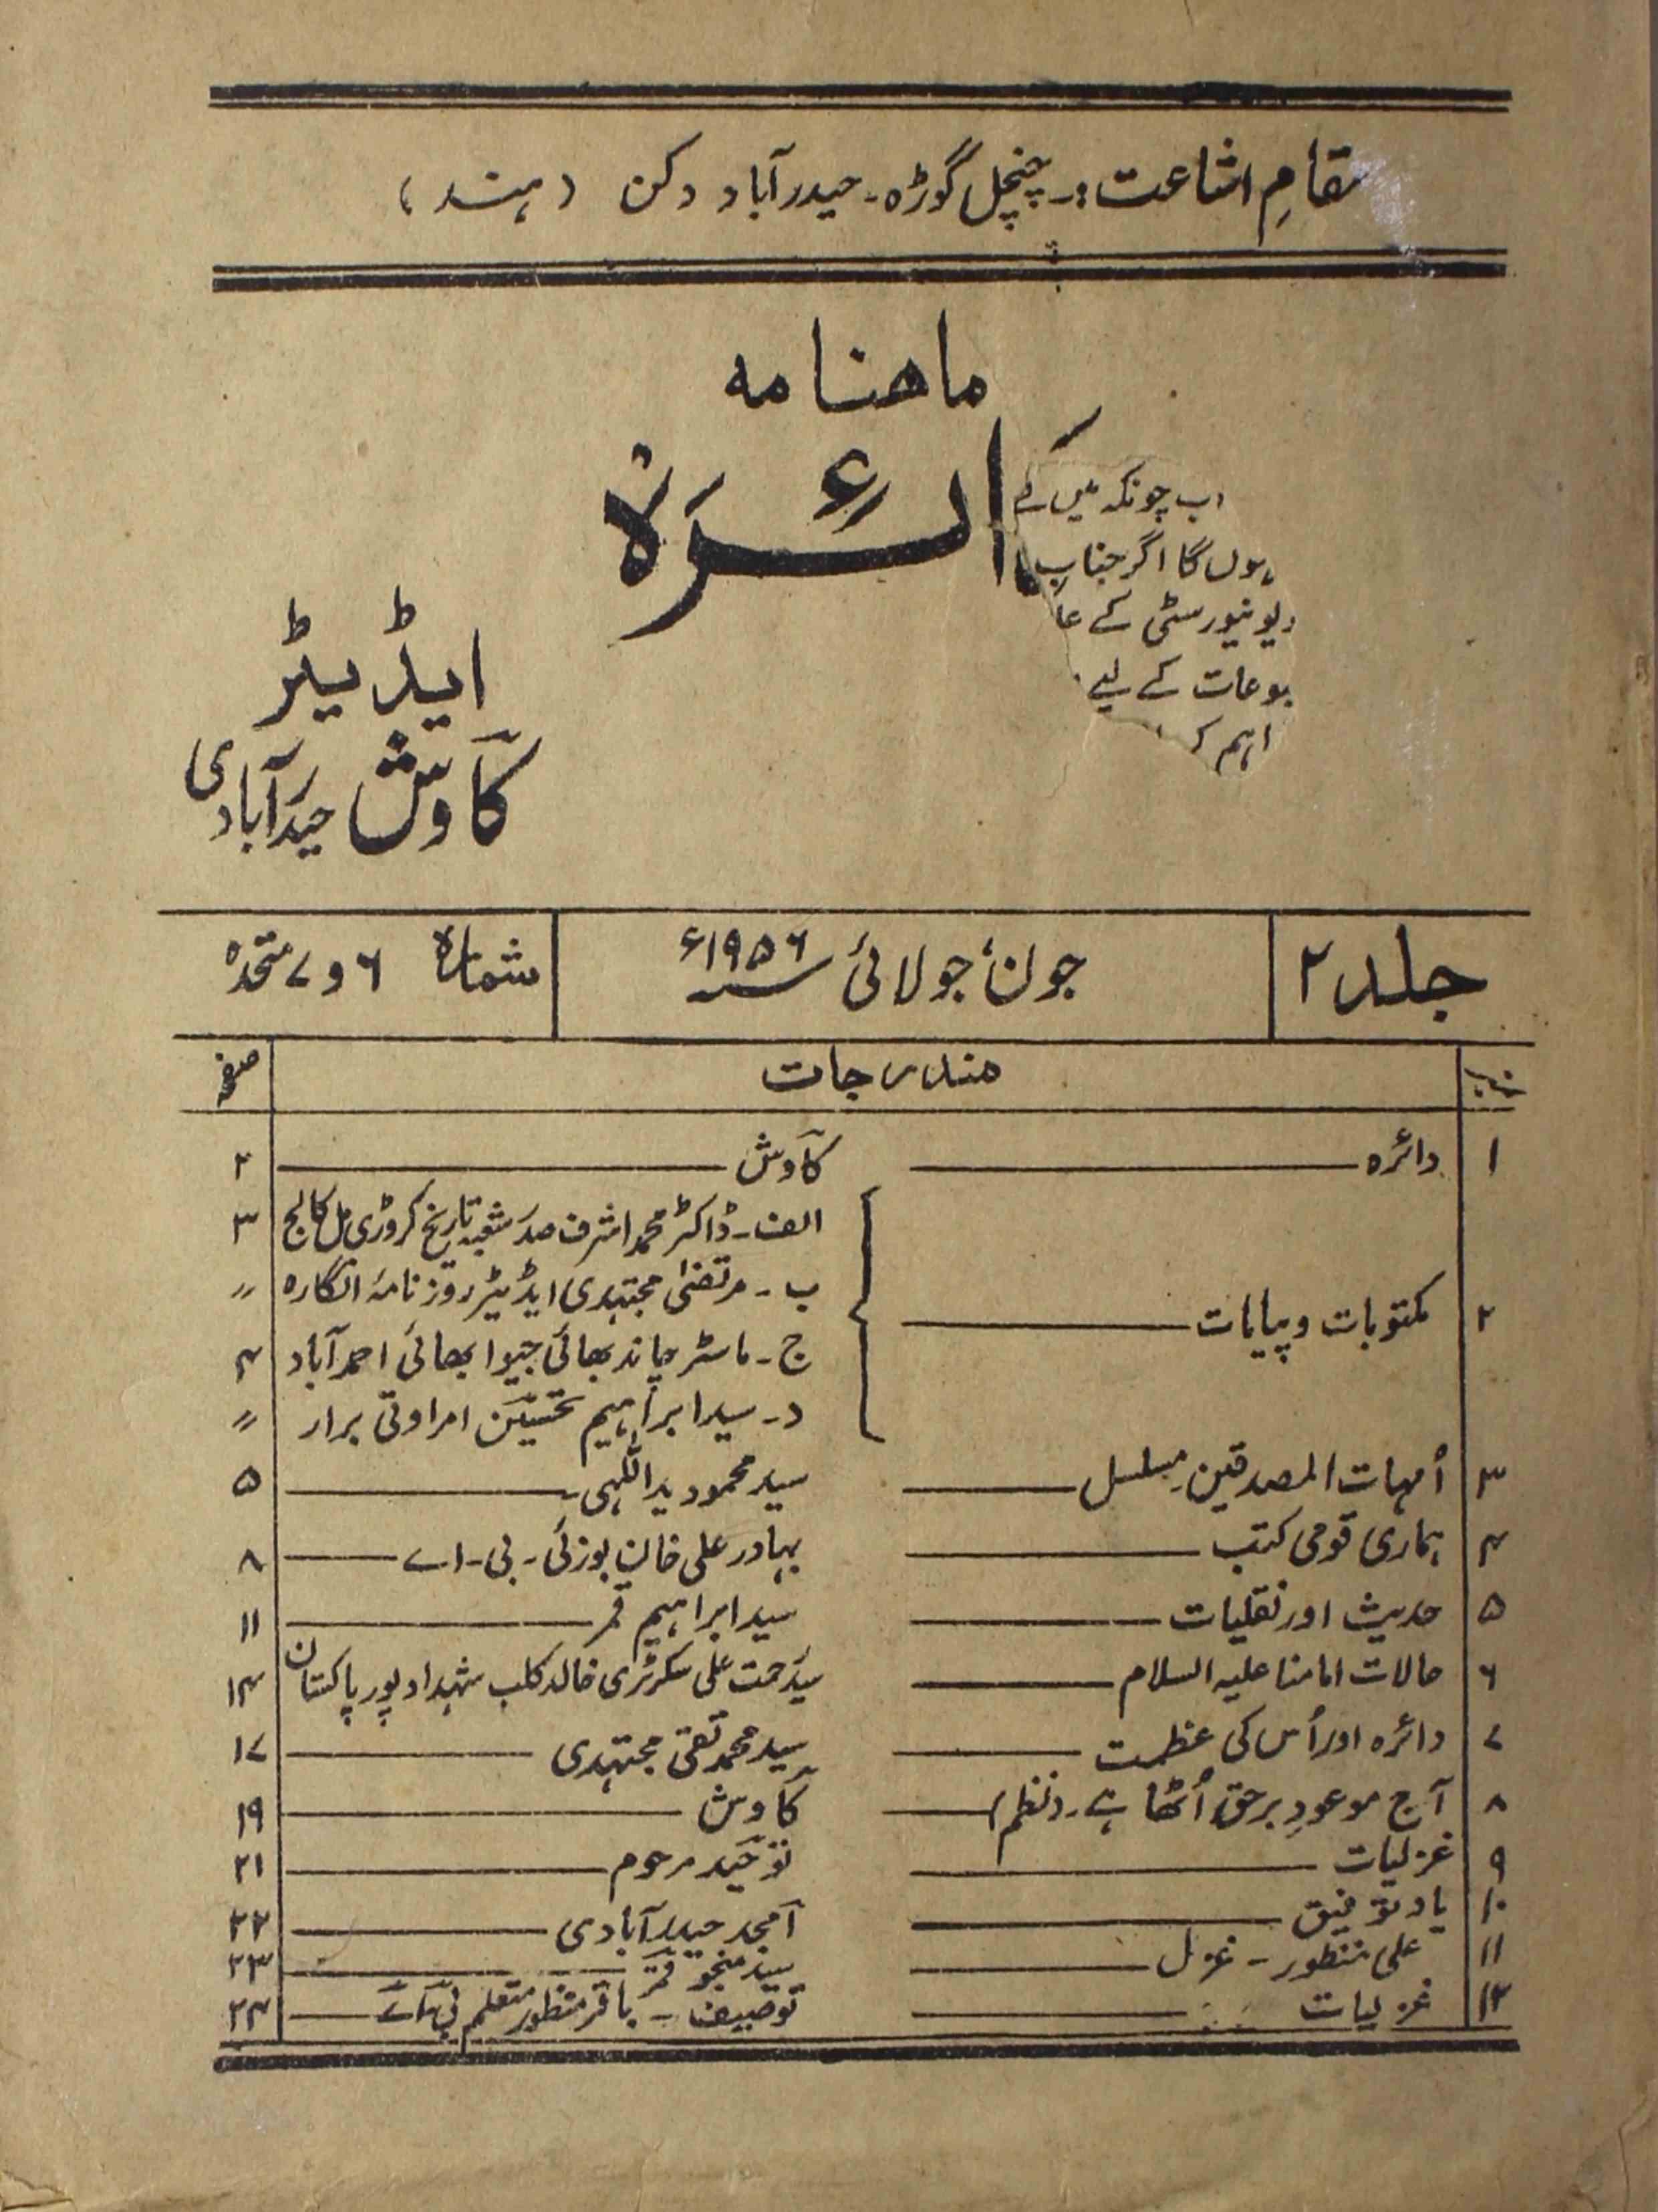 مقامِ اشاعت :۔ چنچل گوڑہ۔ حیدرآباد دکن (ہند)
ماھنامہ
ائرہ
اب چونکہ میں کے
ہوں گا اگر جناب
یونیورسٹی کے عا
بوعات کے لیے
اہم کر
ایڈیٹر
کاوش حیدرآبادی
جلد ۲
جون، جولائی سنہ ۱۹۵۶ء
شمارہ ۶ و ۷ متحدہ
نمبر مندرجات صفحہ
۱ دائرہ کاوش ۲
۲ مکتوبات و پیامات
الف۔ ڈاکٹر محمد اشرف صدر شعبہ تاریخ کروڑی مل کالج ۳
ب۔ مرتضیٰ مجتہدی ایڈیٹر روزنامہ انگارہ ״
ج۔ ماسٹر چاند بھائی جیوا بھائی احمدآباد ۴
د۔ سید ابراہیم تحسین امراوتی برار ״
۳ اُمہات المصدقین مسلسل سید محمود یداللہی ۵
۴ ہماری قومی کتب بہادر علی خان بوزئی۔ بی۔ اے ۸
۵ حدیث اور نقلیات سید ابراہیم قمر ۱۱
۶ حالات امامنا علیہ السلام سید رحمت علی سکرٹری خالد کلب شہدادپور پاکستان ۱۴
۷ دائرہ اور اُس کی عظمت سید محمد تقی مجتہدی ۱۷
۸ آج موعودِ برحق اُٹھا ہے۔ (نظم) کاوش ۱۹
۹ غزلیات توحید مرحوم ۲۱
۱۰ یاد توفیق امجد حیدرآبادی ۲۲
۱۱ علی منظور۔ غزل سید منجو قمر ۲۳
۱۲ غزلیات توصیف۔ باقر منظور متعلم بی اے ۲۴